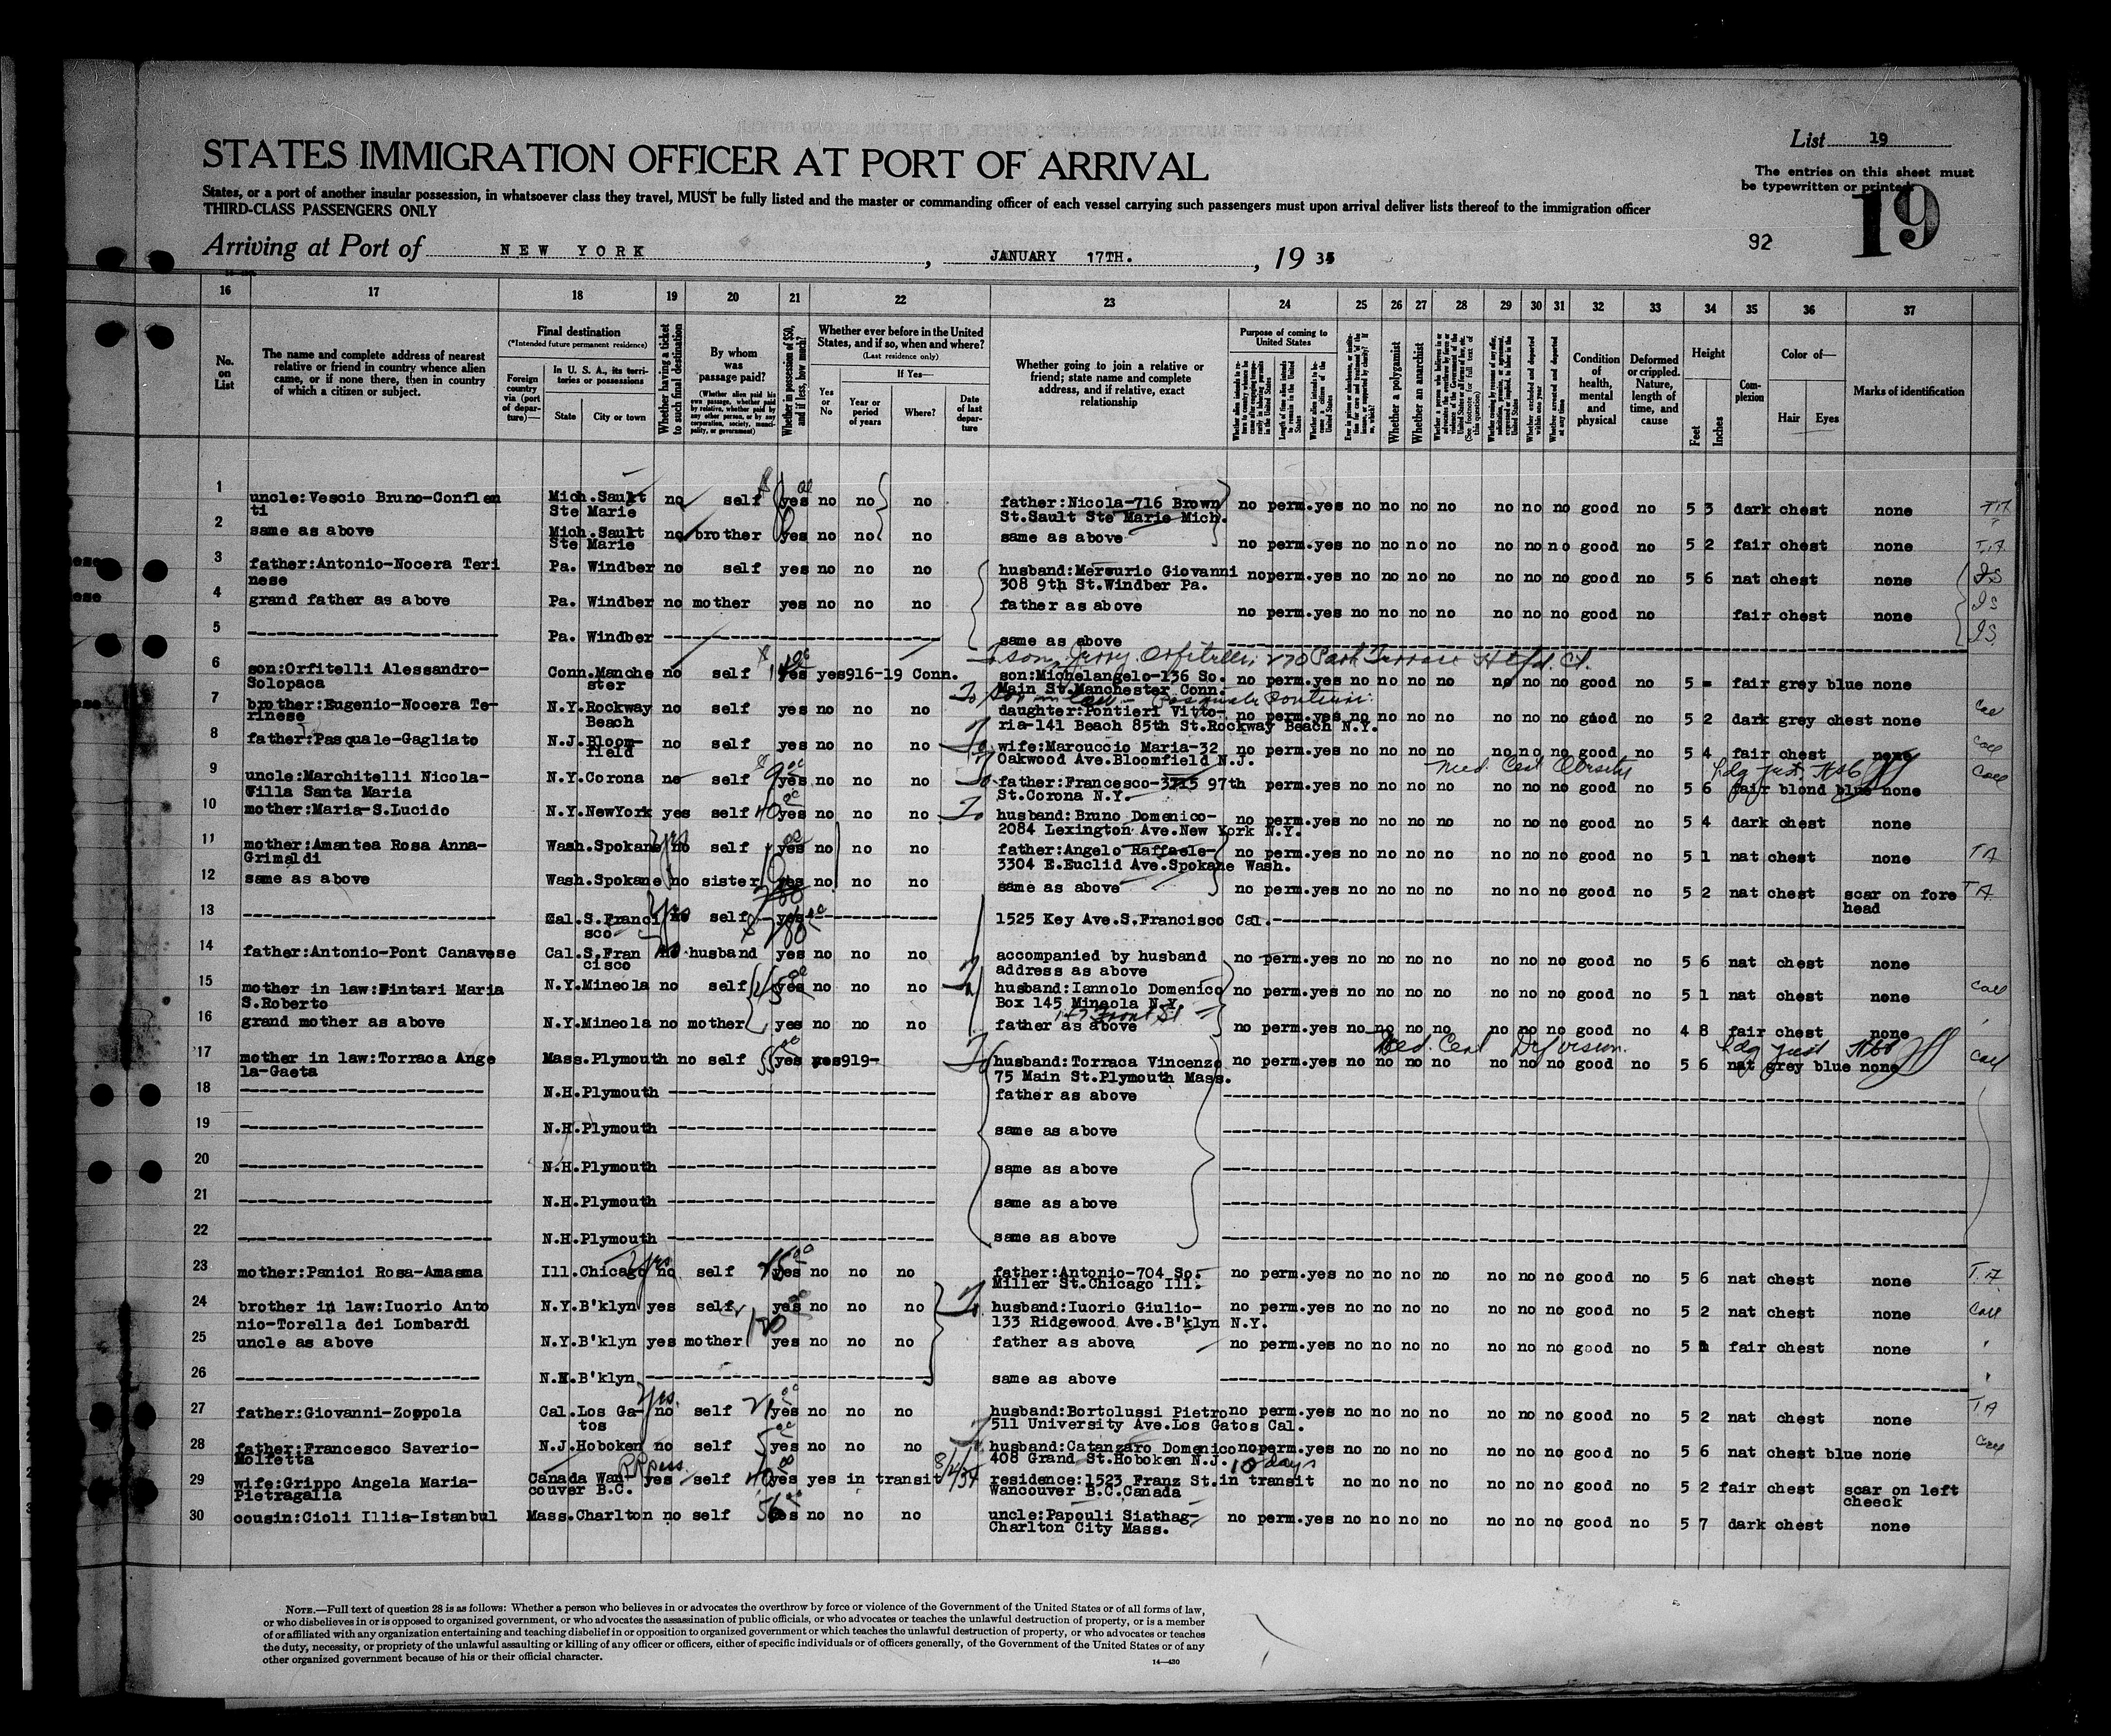 List 19
The entries on this sheet must
be typewritten or printed
19
92
STATES IMMIGRATION OFFICER AT PORT OF ARRIVAL
States, or a port of another insular possession, in whatsoever class they travel, MUST be fully listed and the master or commanding officer of each vessel carrying such passengers must upon arrival deliver lists thereof to the immigration officer
THIRD-CLASS PASSENGERS ONLY
Arriving at Port of NEW YORK, JANUARY 17TH., 19 35
16 17 18 19 20 21 22 23 24 25 26 27 28 29 30 31 32 33 34 35 36 37
No. on List
The name and complete address of nearest relative or friend in country whence alien came, or if none there, then in country of which a citizen or subject.
Final destination
(*Intended future permanent residence)
Foreign country via (port of departure)—
In U. S. A., its territories or possessions
State
City or town
Whether having a ticket to such final destination
By whom was passage paid?
(Whether alien paid his own passage, whether paid by relative, whether paid by any other person, or by any corporation, society, municipality, or government)
Whether in possession of $50, and if less, how much?
Whether ever before in the United States, and if so, when and where?
(Last residence only)
If Yes—
Yes or No
Year or period of years
Where?
Date of last departure
Whether going to join a relative or friend; state name and complete address, and if relative, exact relationship
Purpose of coming to United States
Length of time alien intends to remain in the United States
Whether alien intends to become a citizen of the United States
Whether a polygamist
Whether an anarchist
Condition of health, mental and physical
Deformed or crippled. Nature, length of time, and cause
Height
Feet
Inches
Complexion
Color of—
Hair
Eyes
Marks of identification
1 uncle:Vescio Bruno-Conflen Mich.Sault no self yes no no no father:Nicola-716 Brown no perm.yes no no no no no no no good no 5 3 dark chest none
ti Ste Marie St.Sault Ste Marie Mich.
2 same as above Mich.Sault no brother yes no no no same as above no perm.yes no no no no no no no good no 5 2 fair chest none T.A.
Ste Marie
3 father:Antonio-Nocera Teri Pa. Windber no self yes no no no husband:Mercurio Giovanni no perm.yes no no no no no no no good no 5 6 nat chest none IS
nese 308 9th St.Windber Pa.
4 grand father as above Pa. Windber no mother yes no no no father as above no perm.yes no no no no no no no good no fair chest none IS
5 Pa. Windber same as above IS
To son, Jerry Orfitelli 270 Park Terrace Htfd. Ct.
6 son:Orfitelli Alessandro- Conn.Manche no self yes yes916-19 Conn. son:Michelangelo-136 So. no perm.yes no no no no no no no good no 5 - fair grey blue none
Solopaca ster Main St.Manchester Conn.
7 brother:Eugenio-Nocera Te- N.Y.Rockway no self yes no no no daughter:Pontieri Vitto- no perm.yes no no no no no no no good no 5 2 dark grey chest none
rinese Beach ria-141 Beach 85th St.Rockway Beach N.Y.
8 father:Pasquale-Gagliato N.J.Bloom- no self yes no no no To wife:Marcuccio Maria-32 no perm.yes no no no no no no no good no 5 4 fair chest none
field Oakwood Ave.Bloomfield N.J.
Med Cert Obesity
9 uncle:Marchitelli Nicola- N.Y.Corona no self yes no no no To father:Francesco-3715 97th perm.yes no no no no no no no good no 5 6 fair blond blue none
Villa Santa Maria St.Corona N.Y.
10 mother:Maria-S.Lucido N.Y.NewYork yes self 40 yes no no no To husband:Bruno Domenico- no perm.yes no no no no no no no good no 5 4 dark chest none
2084 Lexington Ave.New York N.Y.
11 mother:Amantea Rosa Anna- Wash.Spokane no self yes no no no father:Angelo Raffaele- no perm.yes no no no no no no no good no 5 1 nat chest none TA
Grimaldi yrs 3304 E.Euclid Ave.Spokane Wash.
12 same as above Wash.Spokane no sister yes no no no same as above no perm.yes no no no no no no no good no 5 2 nat chest scar on fore T A.
head
13 Cal.S.Franci no self yes 1525 Key Ave.S.Francisco Cal.
sco
14 father:Antonio-Pont Canavese Cal.S.Fran no husband yes no no no accompanied by husband no perm.yes no no no no no no no good no 5 6 nat chest none
cisco address as above
15 mother in law:Sintari Maria N.Y.Mineola no self 45 yes no no no husband:Iannolo Domenico no perm.yes no no no no no no no good no 5 1 nat chest none Call
S.Roberto Box 145 Mineola N.Y.
16 grand mother as above N.Y.Mineola no mother yes no no no father as above no perm.yes no no no no no no no good no 4 8 fair chest none
Med. Cert Df vision.
17 mother in law:Torraca Ange Mass.Plymouth no self yes yes919- To husband:Torraca Vincenzo no perm.yes no no no no no no no good no 5 6 nat grey blue none Call
la-Gaeta 75 Main St.Plymouth Mass.
18 N.H.Plymouth father as above
19 N.H.Plymouth same as above
20 N.H.Plymouth same as above
21 N.H.Plymouth same as above
22 N.H.Plymouth same as above
23 mother:Panici Rosa-Amasma Ill.Chicago no self yes no no no father:Antonio-704 So. no perm.yes no no no no no no no good no 5 6 nat chest none T.A.
Miller St.Chicago Ill.
24 brother in law:Iuorio Anto N.Y.B'klyn yes self yes no no no To husband:Iuorio Giulio- no perm.yes no no no no no no no good no 5 2 nat chest none Call
nio-Torella dei Lombardi 133 Ridgewood Ave.B'klyn N.Y.
25 uncle as above N.Y.B'klyn yes mother yes no no no father as above no perm.yes no no no no no no no good no 5 fair chest none
26 N.Y.B'klyn same as above
27 father:Giovanni-Zoppola Cal.Los Ga- no self yes no no no husband:Bortolussi Pietro no perm.yes no no no no no no no good no 5 2 nat chest none T.A
tos 511 University Ave.Los Gatos Cal.
28 father:Francesco Saverio- N.J.Hoboken no self yes no no no husband:Catanzaro Domenico no perm.yes no no no no no no no good no 5 6 nat chest blue none
Molfetta 408 Grand St.Hoboken N.J. 10 days
29 wife:Grippo Angela Maria- Canada Wan- yes self 40 yes yes in transit residence:1523 Franz St.in transit no no no no no no no good no 5 2 fair chest scar on left
Pietragalla couver B.C. Wancouver B.C.Canada cheeck
30 cousin:Cioli Illia-Istanbul Mass.Charlton no self 56 yes no no no uncle:Papouli Siathag- no perm.yes no no no no no no no good no 5 7 dark chest none
Charlton City Mass.
NOTE.—Full text of question 28 is as follows: Whether a person who believes in or advocates the overthrow by force or violence of the Government of the United States or of all forms of law,
or who disbelieves in or is opposed to organized government, or who advocates the assassination of public officials, or who advocates or teaches the unlawful destruction of property, or is a member
of or affiliated with any organization entertaining and teaching disbelief in or opposition to organized government or which teaches the unlawful destruction of property, or who advocates or teaches
the duty, necessity, or propriety of the unlawful assaulting or killing of any officer or officers, either of specific individuals or of officers generally, of the Government of the United States or of any
other organized government because of his or their official character.
14—430